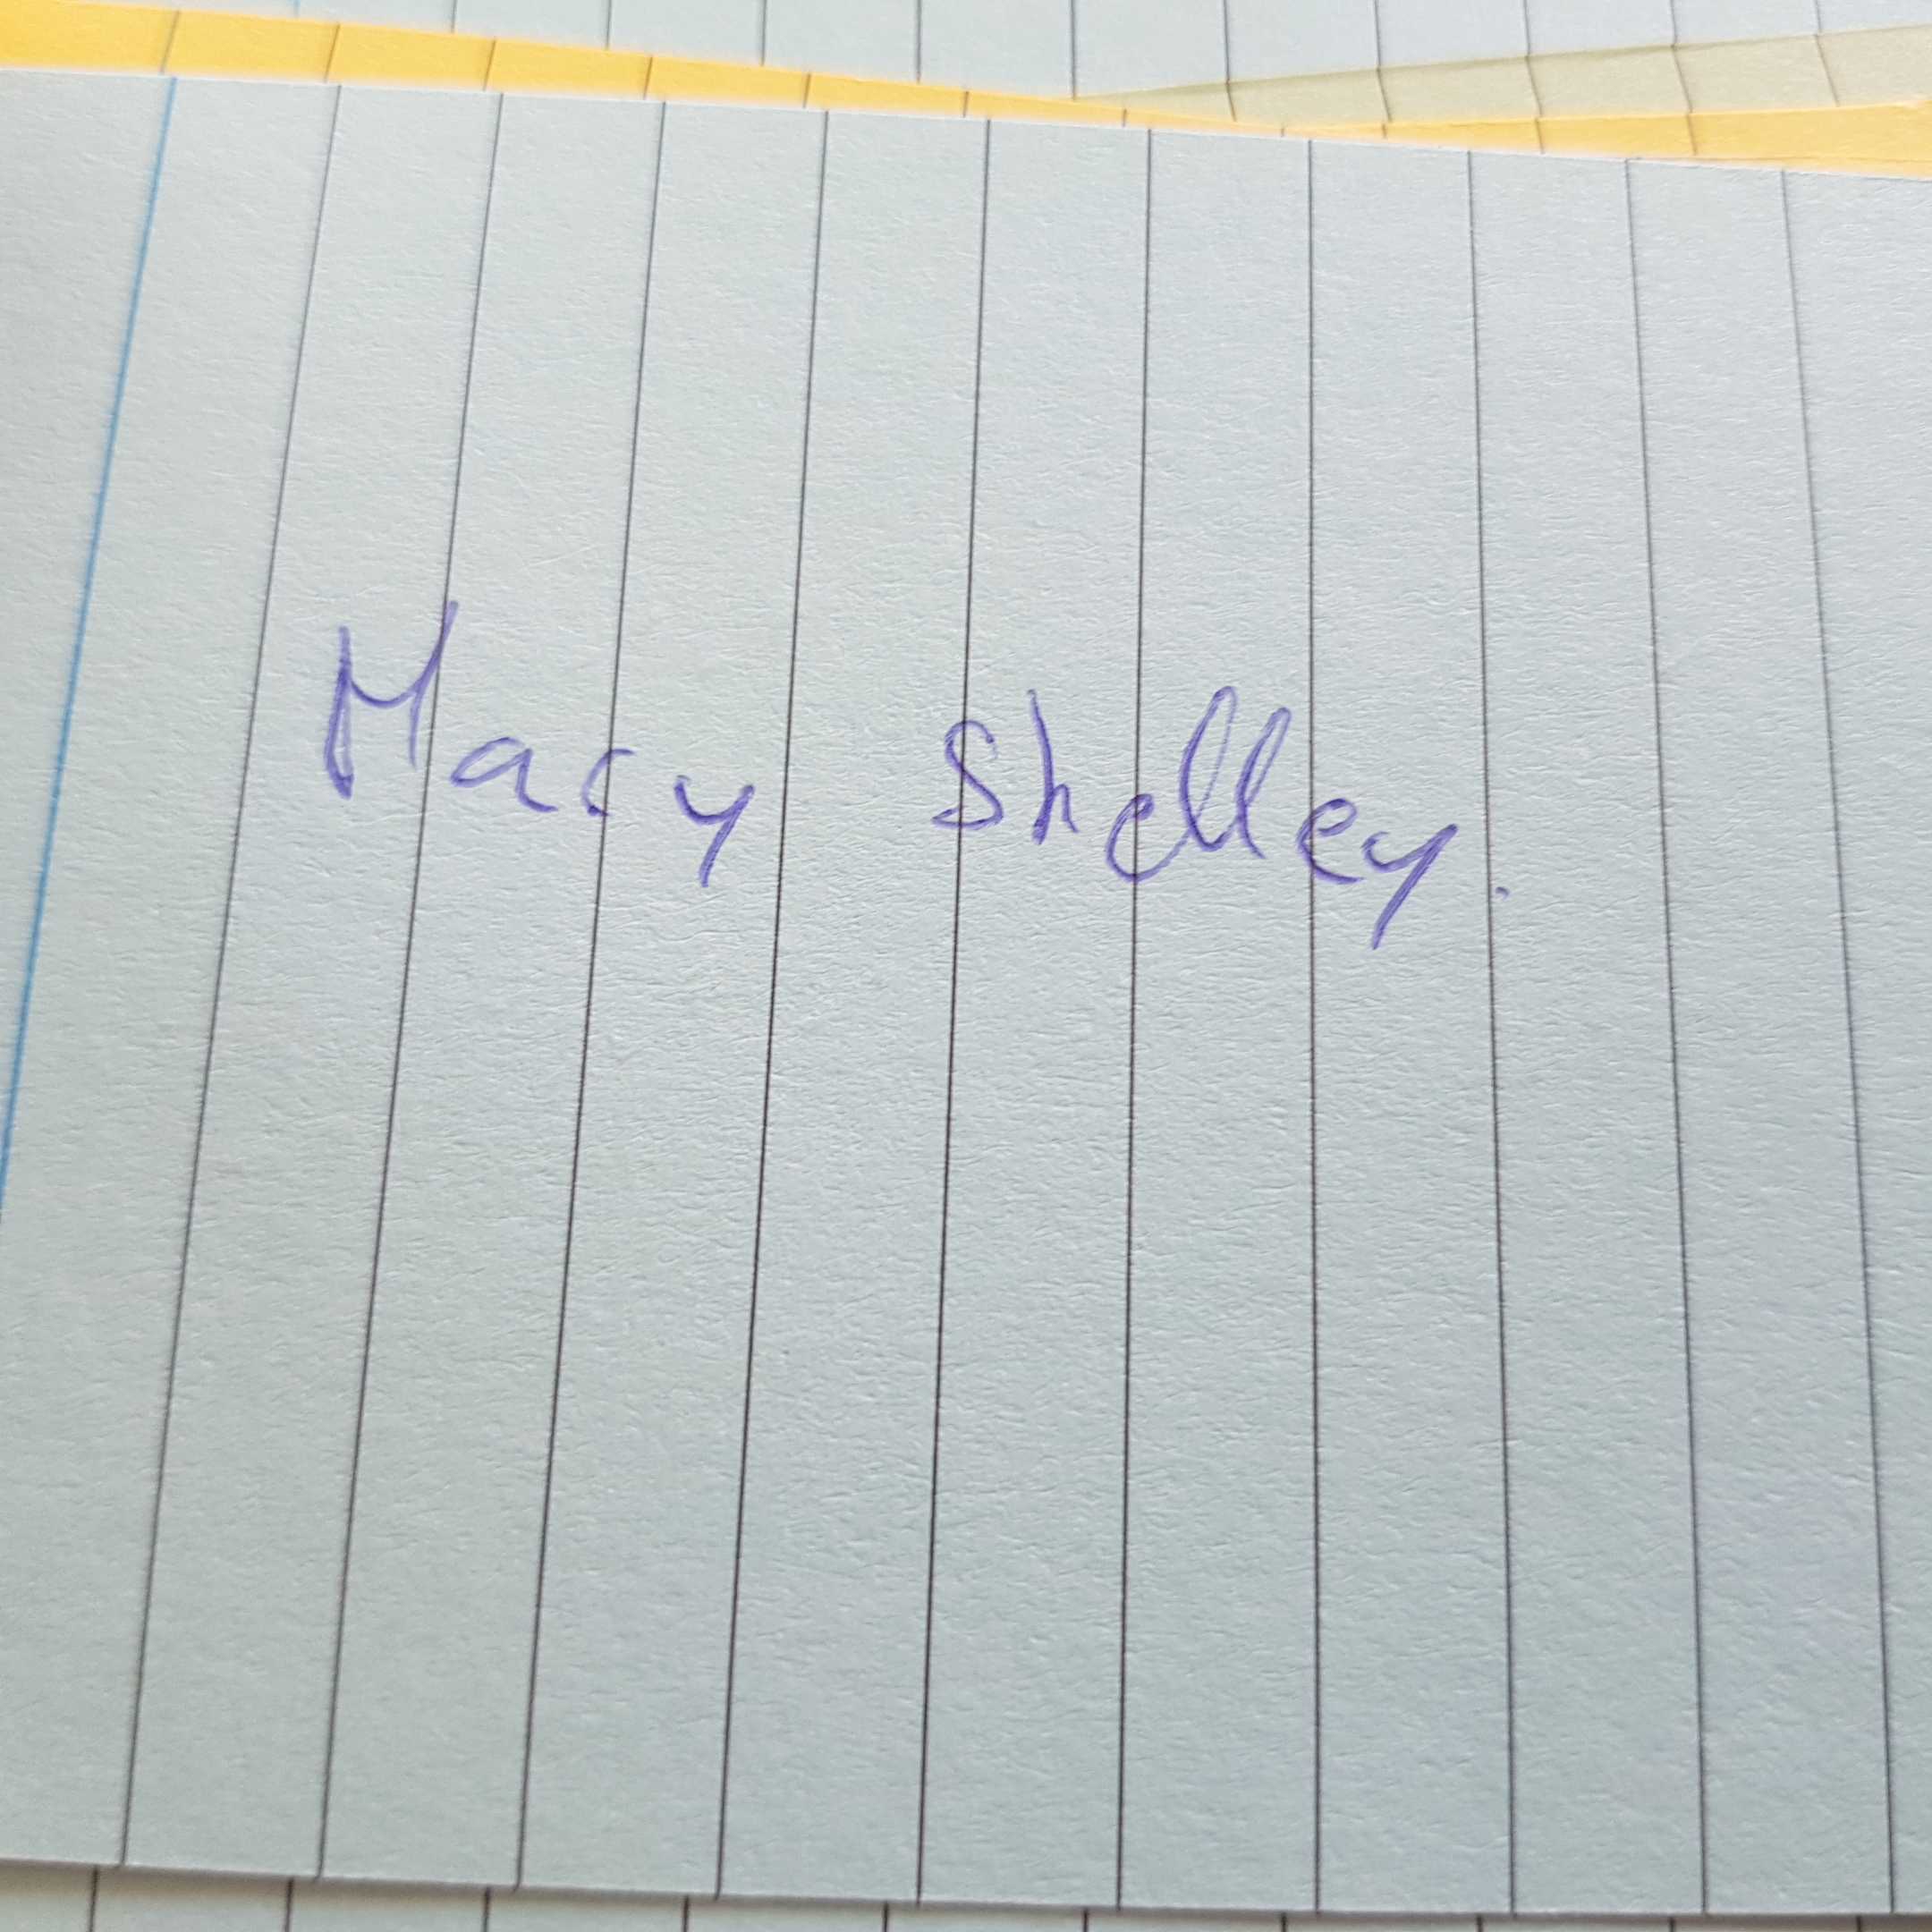 Mary Shelley.